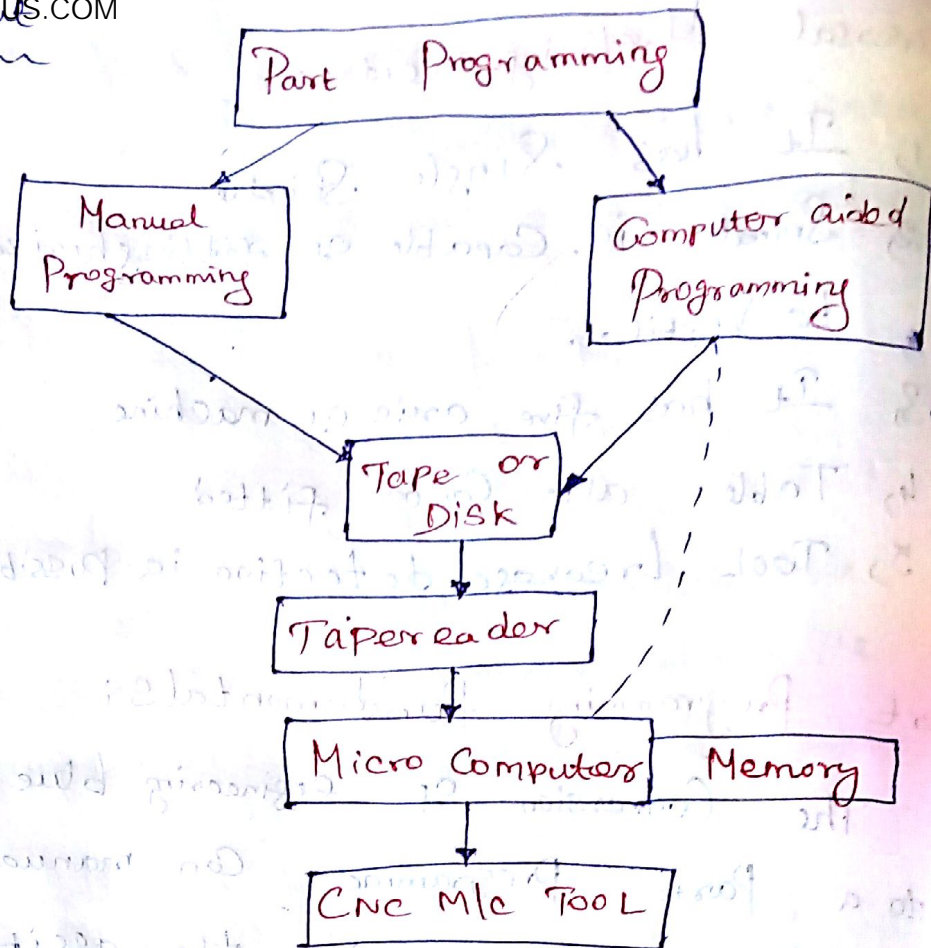 US.COM
Part Programming
Manual
Programming
Computer aided
Programming
Tape or
Disk
Tapereader
Micro Computer
Memory
CNC M/C TOOL